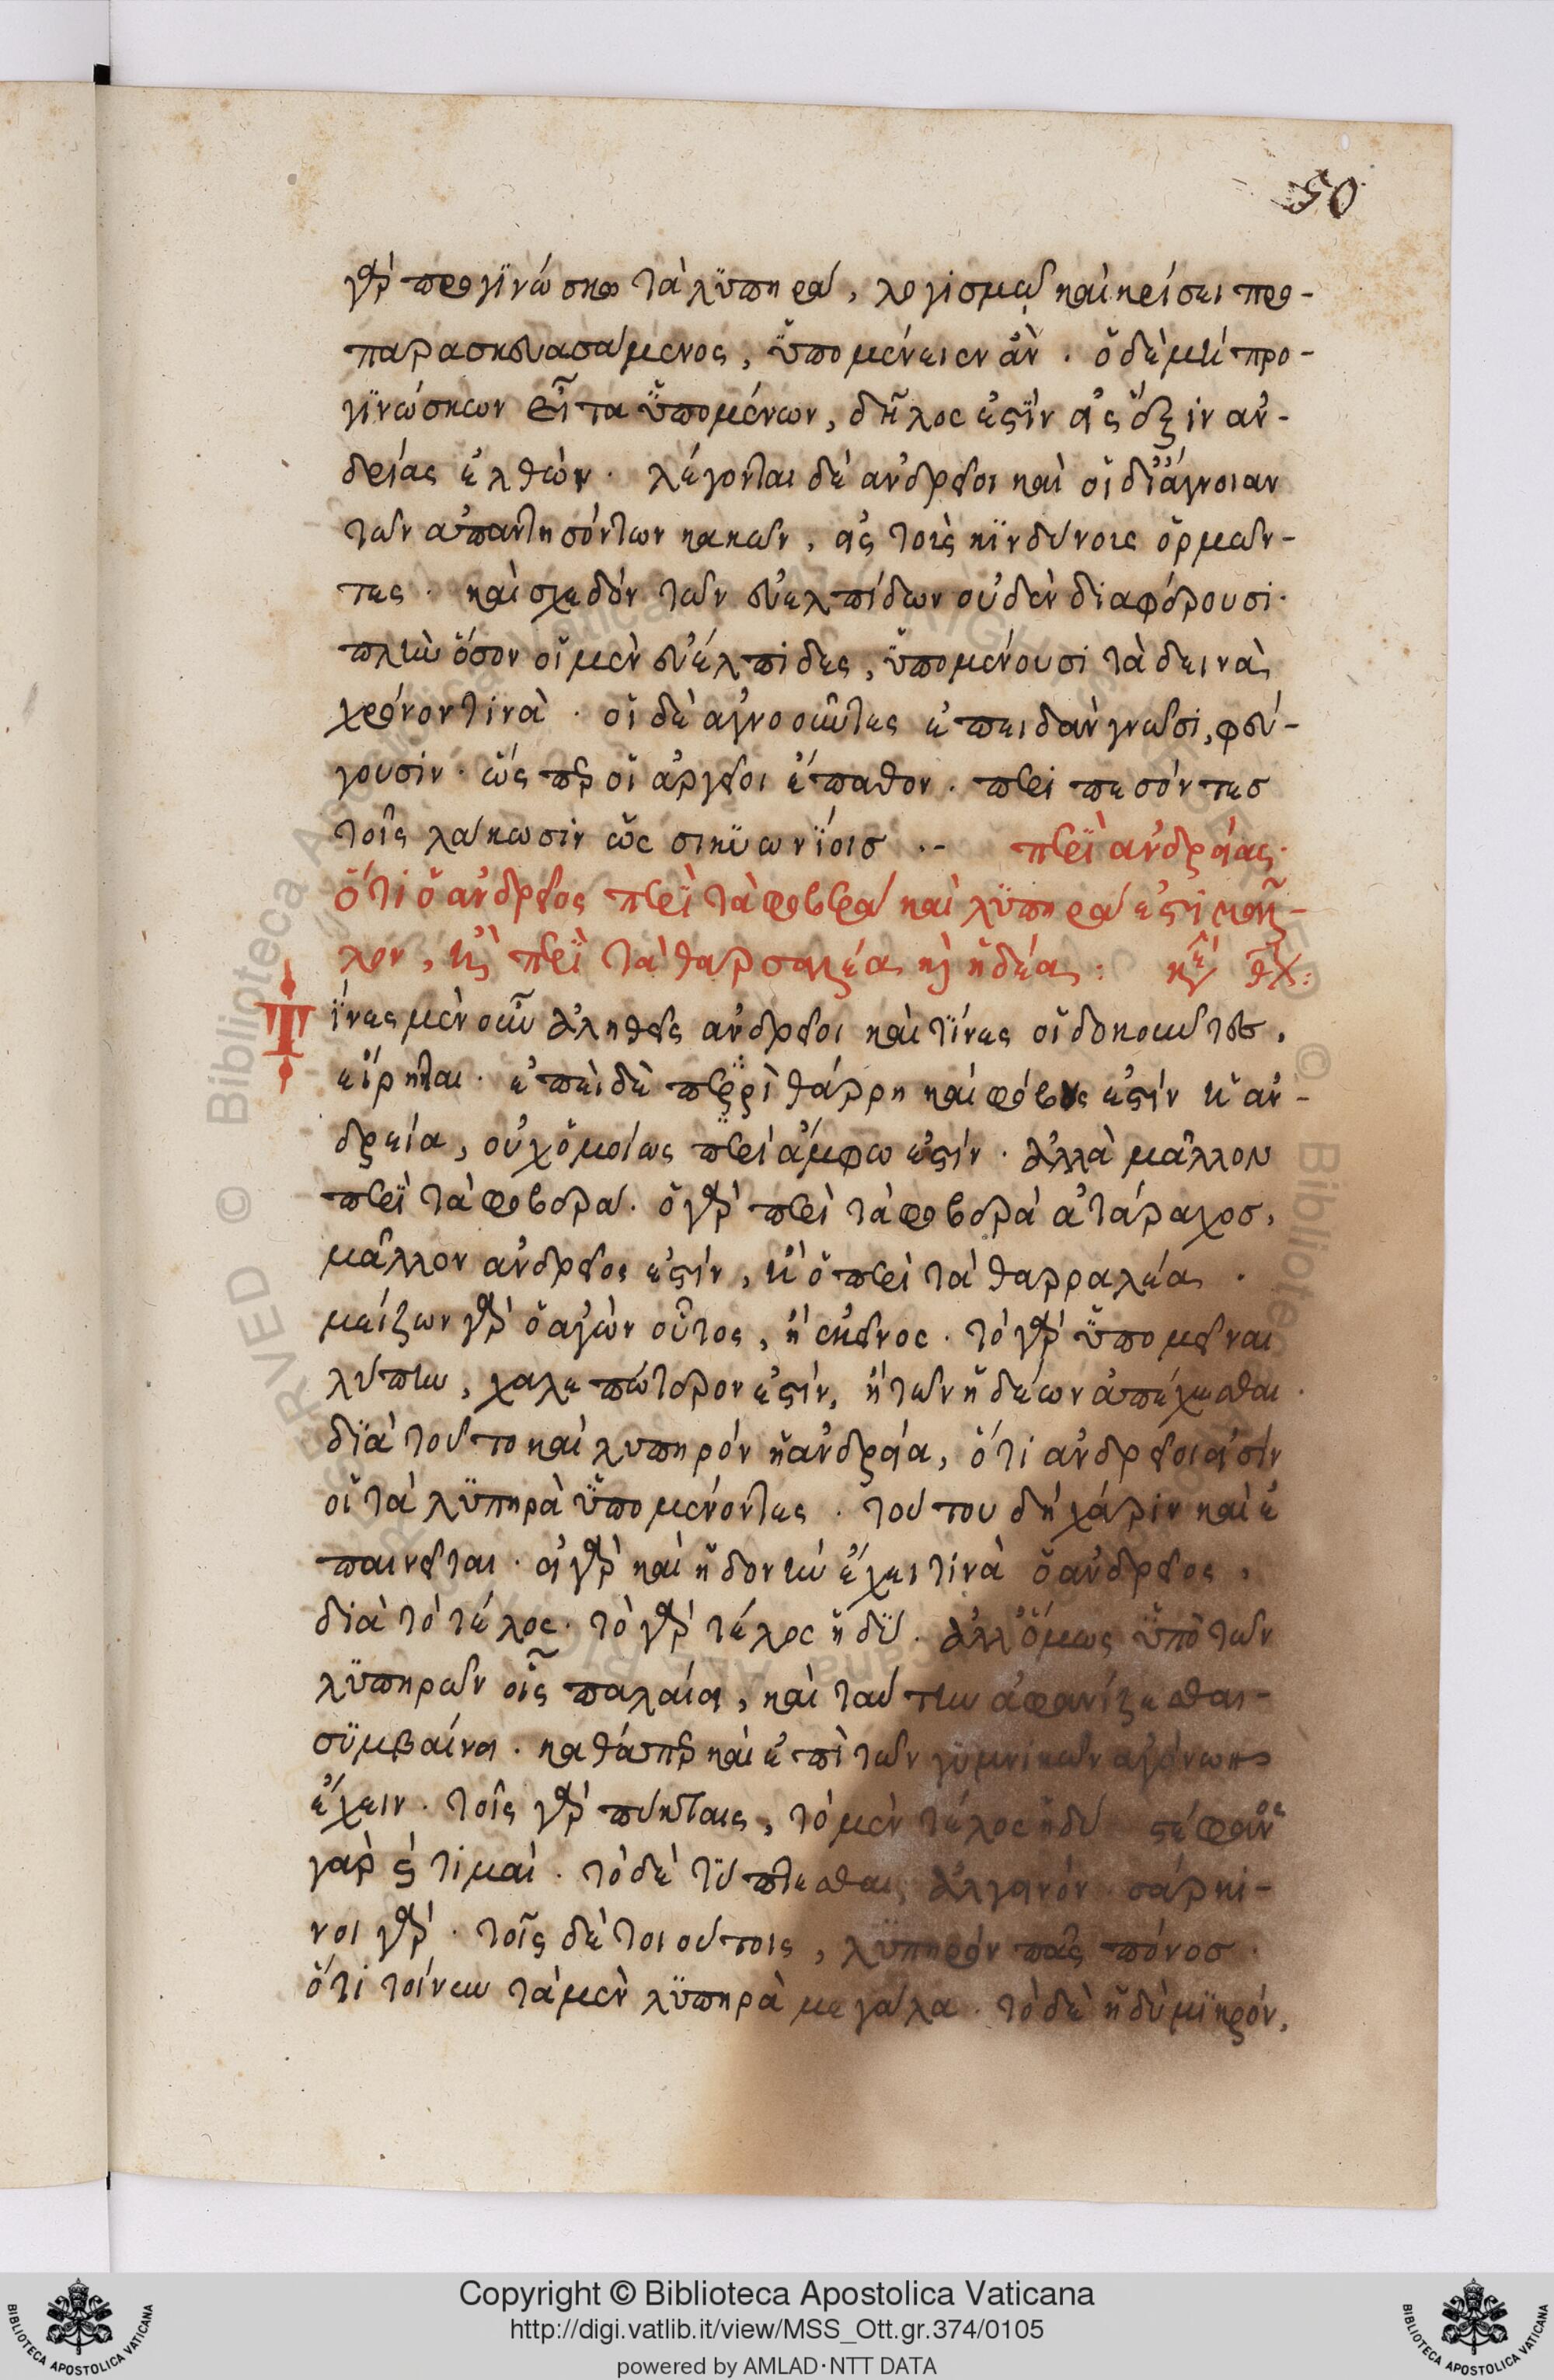 50
γὰρ προγϊνώσκων τὰ λϋπηρὰ, λογισμῷ καὶ κρίσει προ-
παρασκευασάμενος, ὑπομένειεν ἂν. ὁ δὲ μὴ προ-
γϊνώσκων εἶτα ὑπομένων, δῆλος ἐστὶν εἰς ἕξιν ἀν-
δρίας ἐλθὼν. λέγονται δὲ ἀνδρεῖοι καὶ οἱ δι' ἄγνοιαν
τῶν ἀπαντησόντων κακῶν, εἰς τοὺς κϊνδύνοις ὁρμῶν-
τες. καὶ σχεδὸν τῶν εὐελπίδων οὐδὲν διαφέρουσι.
πλὴν ὅσον οἱ μὲν εὐέλπιδες, ὑπομένουσι τὰ δεινὰ
χρόνον τινὰ. οἱ δὲ ἀγνοοῦντες ἐπειδὰν γνῶσι, φεύ-
γουσιν. ὥσπερ οἱ ἀργεῖοι ἔπαθον. περιπεσόντες
τοῖς λάκωσιν ὡς σικϋωνϊοισ .- περὶ ἀνδρείας.
ὅτι ὁ ἀνδρεῖος περὶ τὰ φοβερὰ καὶ λϋπηρὰ ἐστι μᾶλ-
λον, ἢ περὶ τὰ θαρσαλέα καὶ ἡδέα:
Τίνες μὲν οὖν ἀληθεῖς ἀνδρεῖοι καὶ τίνες οἱ δοκοῦντες,
εἴρηται. ἐπεὶ δὲ περὶ θάρρη καὶ φόβους ἐστὶν ἡ ἀν-
δρεία, οὐχ ὁμοίως περὶ ἄμφω ἐστὶν. ἀλλὰ μᾶλλον
περὶ τὰ φοβερὰ. ὁ γὰρ περὶ τὰ φοβερὰ ἀτάραχος,
μᾶλλον ἀνδρεῖος ἐστὶν, ἢ ὁ περὶ τὰ θαρραλέα.
μείζων γὰρ ὁ ἀγὼν οὗτος, ἢ ἐκεῖνος. τὸ γὰρ ὑπομεῖναι
λύπην, χαλεπώτερον ἐστὶν, ἢ τῶν ἡδέων ἀπέχεσθαι.
διὰ τοῦτο καὶ λυπηρὸν ἡ ἀνδρεία, ὅτι ἀνδρεῖοι εἰσὶν
οἱ τὰ λϋπηρὰ ὑπομένοντες. τούτου δὴ χάριν καὶ ἐ
παινεῖται. εἰ γὰρ καὶ ἡδονὴν ἔχει τινὰ ὁ ἀνδρεῖος,
διὰ τὸ τέλος. τὸ γὰρ τέλος ἡδὺ. ἀλλ' ὅμως ὑπὸ τῶν
λϋπηρῶν οἷς παλαίει, καὶ ταύτην ἀφανίζεσθαι-
σϋμβαίνει. καθάπερ καὶ ἐπὶ τῶν γυμνικῶν ἀγώνων
ἔχειν. τοῖς γὰρ πύκταις, τὸ μὲν τέλος ἡδὺ στέφανος
γὰρ καὶ τιμαὶ. τὸ δὲ τϋπτεσθαι, ἀλγεινὸν σάρκι-
νοι γὰρ. τοῖς δὲ τοιούτοις, λϋπηρὸν πᾶς πόνοσ.
ὅτι τοίνυν τὰ μὲν λϋπηρὰ μεγάλα. τὸ δὲ ἡδὺ μϊκρόν,
Copyright © Biblioteca Apostolica Vaticana
http://digi.vatlib.it/view/MSS_Ott.gr.374/0105
powered by AMLAD·NTT DATA